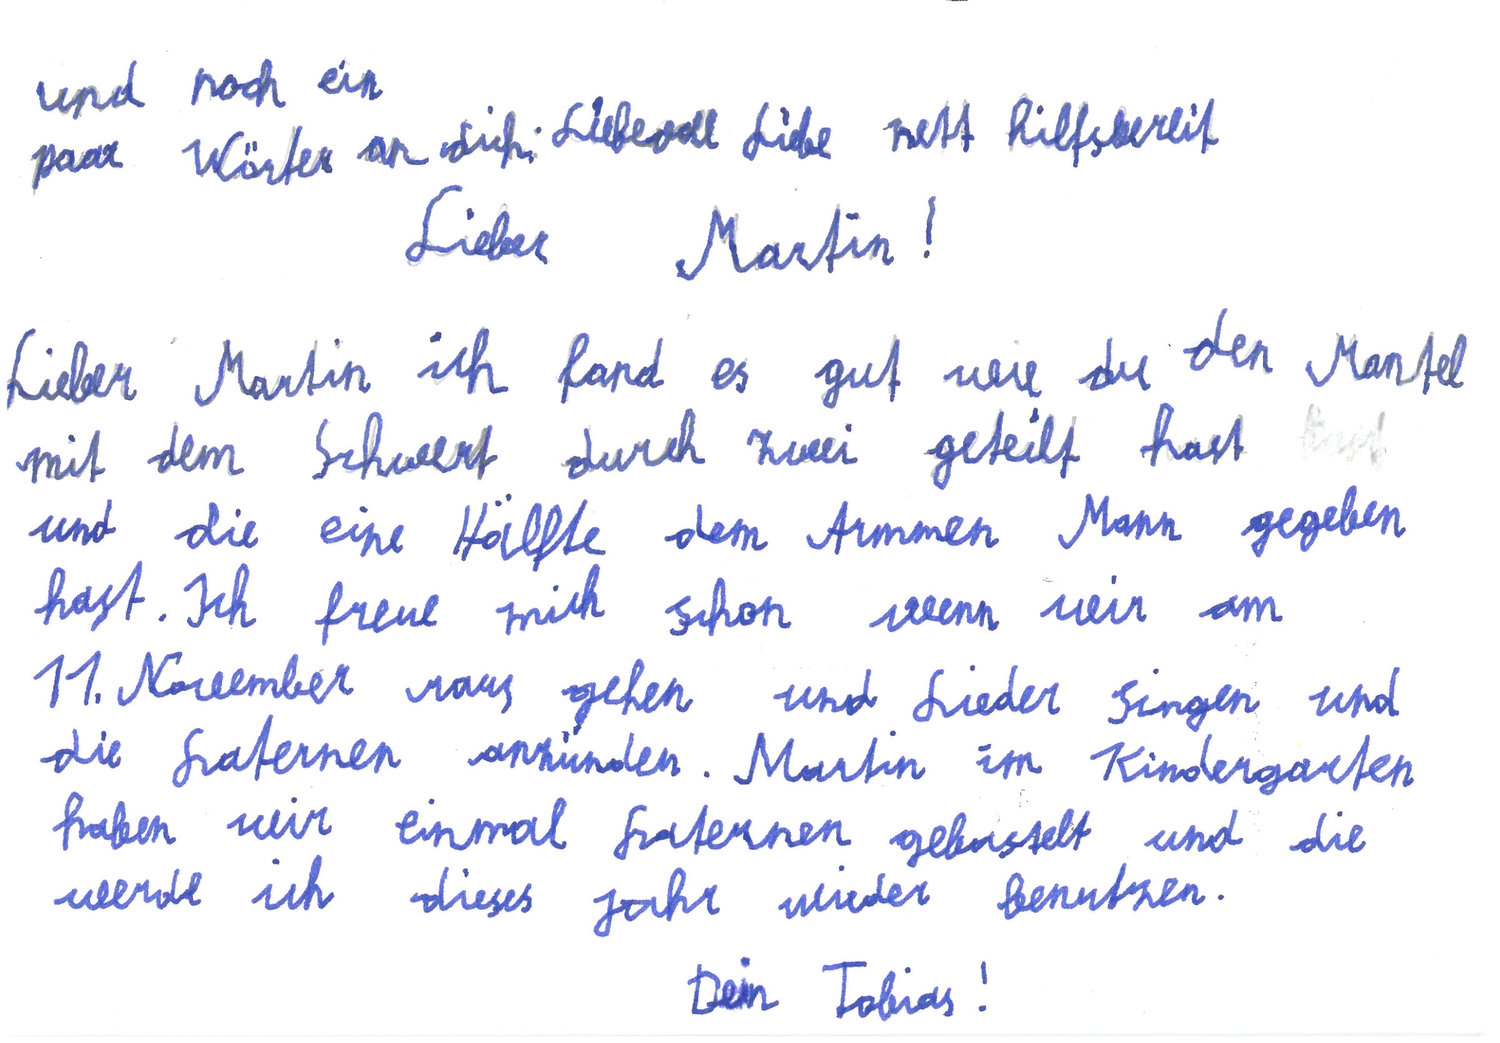 und noch ein
paar Wörter an dich: Liebevoll Liebe nett hilfsbereit
Lieber Martin!
Lieber Martin ich fand es gut wie du den Mantel
mit dem Schwert durch zwei geteilt hast
und die eine Hälfte dem Armmen Mann gegeben
hast. Ich freue mich schon wenn wir am
11. November raus gehen und Lieder singen und
die Laternen anzünden. Martin im Kindergarten
haben wir einmal Laternen gebastelt und die
werde ich dieses jahr wieder benutzen.
Dein Tobias!